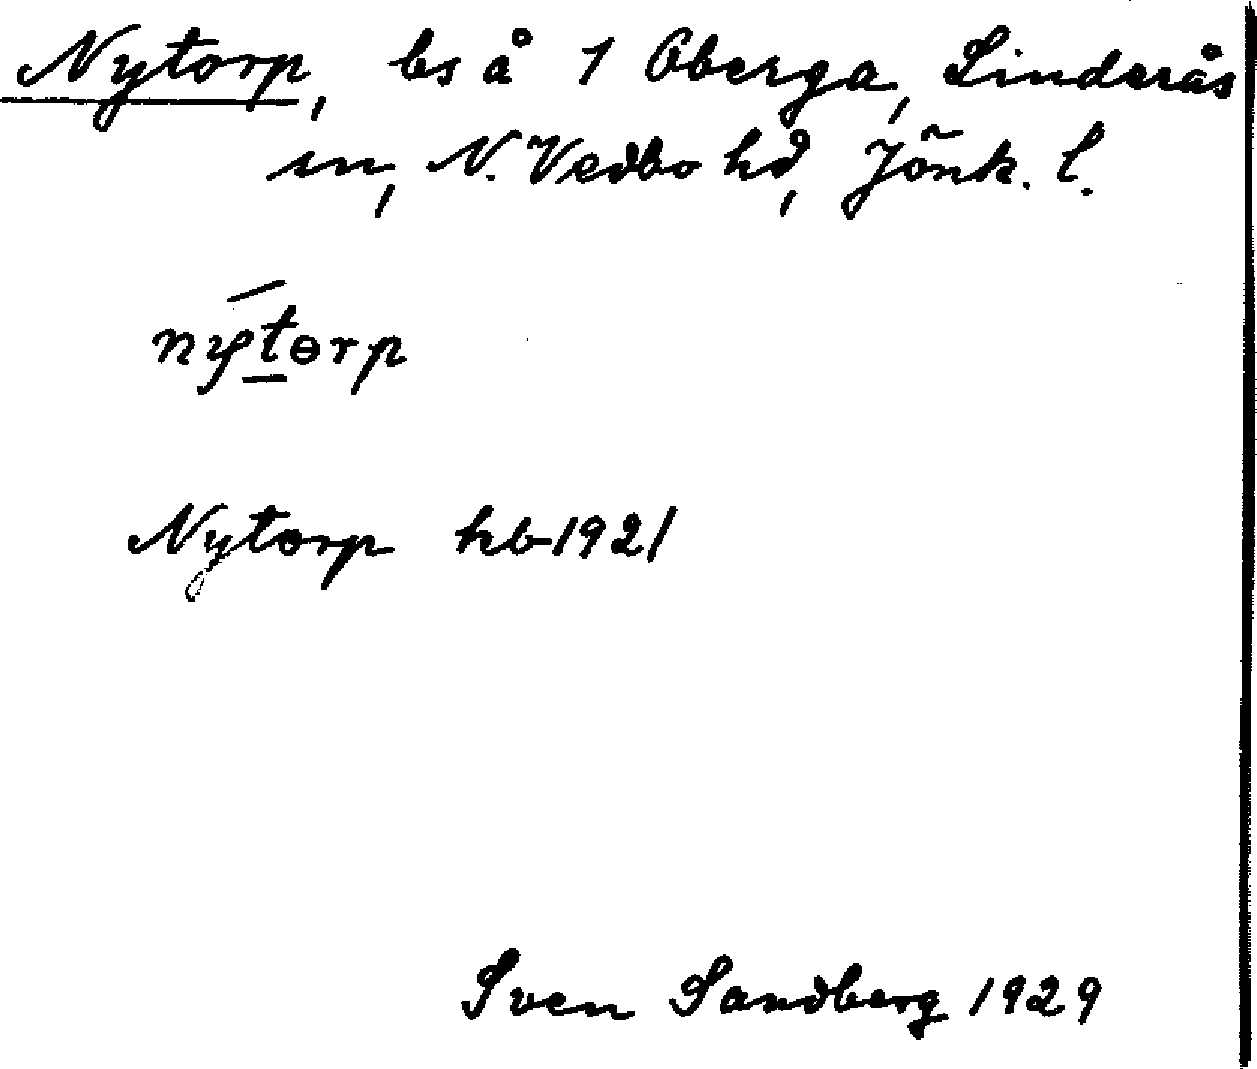 Nytorp, bs å 1 Oberga, Linderås
sn, N. Vedbo hd, Jönk. l.
nýtɵrp
Nytorp hb 1921
Sven Sandberg 1929